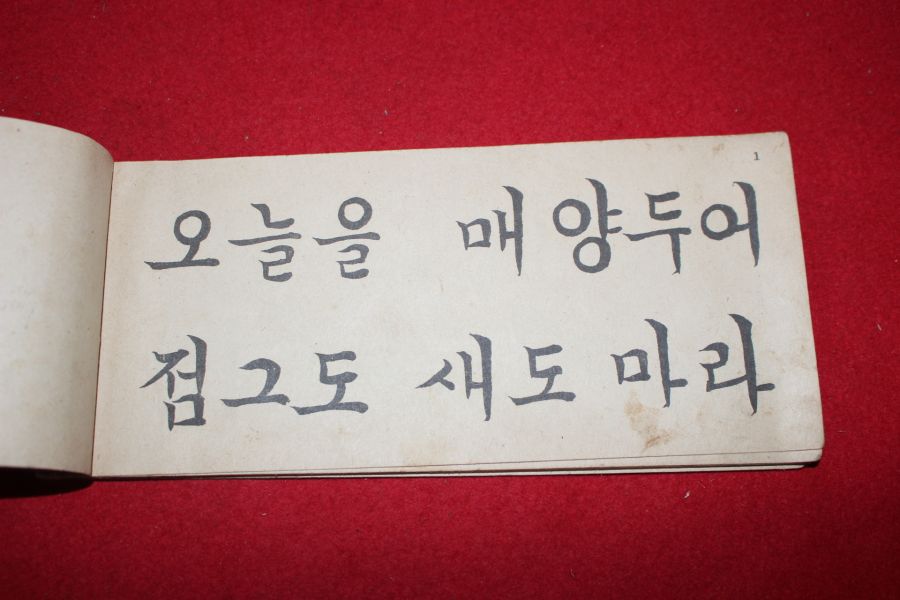 1
오늘을 매양두어
점그도 새도 마라